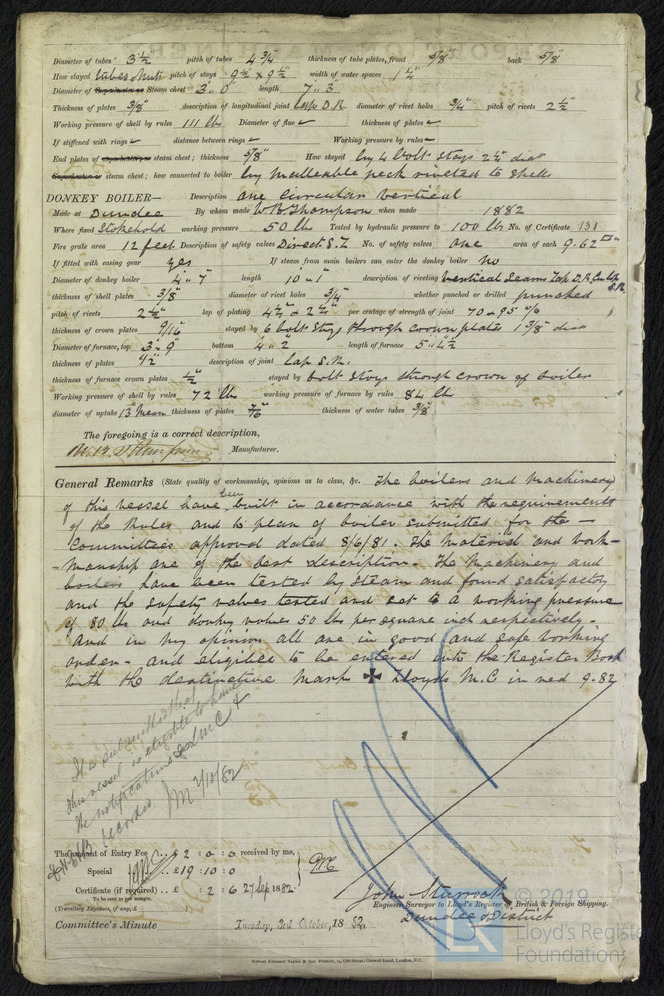 Diameter of tubes 3 1/2" pitch of tubes 4 3/4" thickness of tube plates, front 5/8" back 5/8"
How stayed tubes & nuts pitch of stays 9 1/2 x 9 1/2 width of water spaces 1 1/4"
Diameter of Superheater or Steam chest 3" 0" length 7" 3
Thickness of plates 3/8" description of longitudinal joint Lap D.R. diameter of rivet holes 3/4" pitch of rivets 2 1/2"
Working pressure of shell by rules 111 lbs Diameter of flue thickness of plates
If stiffened with rings distance between rings Working pressure by rules
End plates of superheater or steam chest; thickness 5/8" How stayed by 4 bolt stays 2 1/2" diar
Superheater or steam chest; how connected to boiler by malleable neck riveted to shells
DONKEY BOILER— Description one Circular vertical
Made at Dundee By whom made W.B. Thompson when made 1882
Where fixed Stokehold working pressure 50 lbs Tested by hydraulic pressure to 100 lbs No. of Certificate 131
Fire grate area 12 feet Description of safety valves Direct S.L No. of safety valves one area of each 9.62
If fitted with easing gear yes If steam from main boilers can enter the donkey boiler no
Diameter of donkey boiler 4" 7" length 10" 1" description of riveting vertical Seams Lap D.R. Cir Lap S.R.
thickness of shell plates 3/8" diameter of rivet holes 3/4" whether punched or drilled punched
pitch of rivets 2 1/2" lap of plating per centage of strength of joint
thickness of crown plates 9/16" stayed by 6 bolt Stays through crown plates 1 3/8" diar
Diameter of furnace, top 3" 9" bottom 4" 2" length of furnace 5" 4 1/2
thickness of plates 1/2" description of joint Lap S.R.
thickness of furnace crown plates 1/2" stayed by bolt Stays through crown of boiler
Working pressure of shell by rules 72 lbs working pressure of furnace by rules 84 lbs
diameter of uptake 13" mean thickness of plates 7/16" thickness of water tubes 3/8"
The foregoing is a correct description,
Manufacturer.
General Remarks (State quality of workmanship, opinions as to class, &c. The boilers and machinery
of this vessel have been built in accordance with the requirements
of the Rules and to plan of boiler submitted for the —
Committees approval dated 8/6/81. The material and work-
-manship are of the best description. The Machinery and
boilers have been tested by steam and found satisfactory
and the safety valves tested and set to a working pressure
of 80 lbs and donkey valves 50 lbs per square inch respectively.
And in my opinion all are in good and safe working
order - and eligible to be entered into the Register Book
with the distinctive mark ✠ Lloyds M.C in red 9.82
It is submitted that
this vessel is eligible to have
the notification ✠ LMC
recorded JM 2/10/82
The amount of Entry Fee .. £ 2 : 0 : 0 received by me,
Special .. £ 19 : 10 : 0
Certificate (if required) .. £ : 2 : 6 27 Sep 1882
To be sent as per margin.
(Travelling Expenses, if any, £ )
John Sturrock
Engineer Surveyor to Lloyd's Register of British & Foreign Shipping.
Dundee District
Committee's Minute Tuesday, 3rd October 1882.
© 2019
Lloyd's Register
Foundation